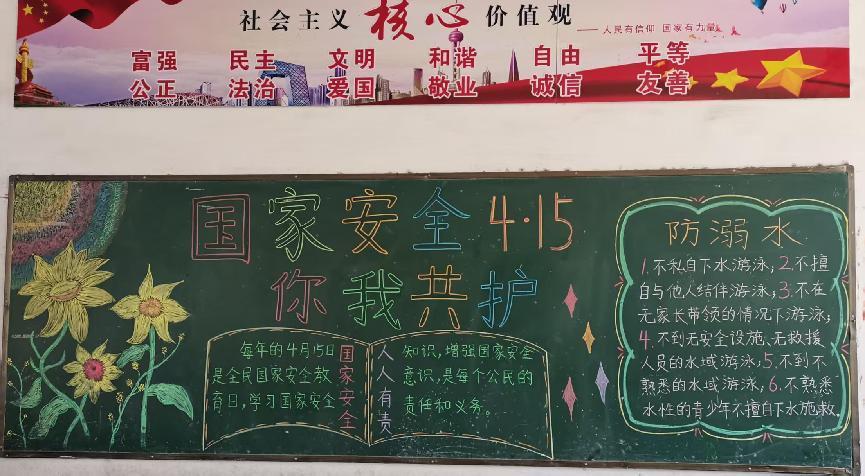 社会主义核心价值观
人民有信仰 国家有力量
富强 民主 文明 和谐 自由 平等
公正 法治 爱国 敬业 诚信 友善
国家安全4·15
你我共护
每年的4月15日
是全民国家安全教
育日,学习国家安全
国家安全
人人有责
知识,增强国家安全
意识,是每个公民的
责任和义务。
防溺水
1.不私自下水游泳;2.不擅
自与他人结伴游泳;3.不在
无家长带领的情况下游泳;
4.不到无安全设施、无救援
人员的水域游泳;5.不到不
熟悉的水域游泳;6.不熟悉
水性的青少年不擅自下水施救.